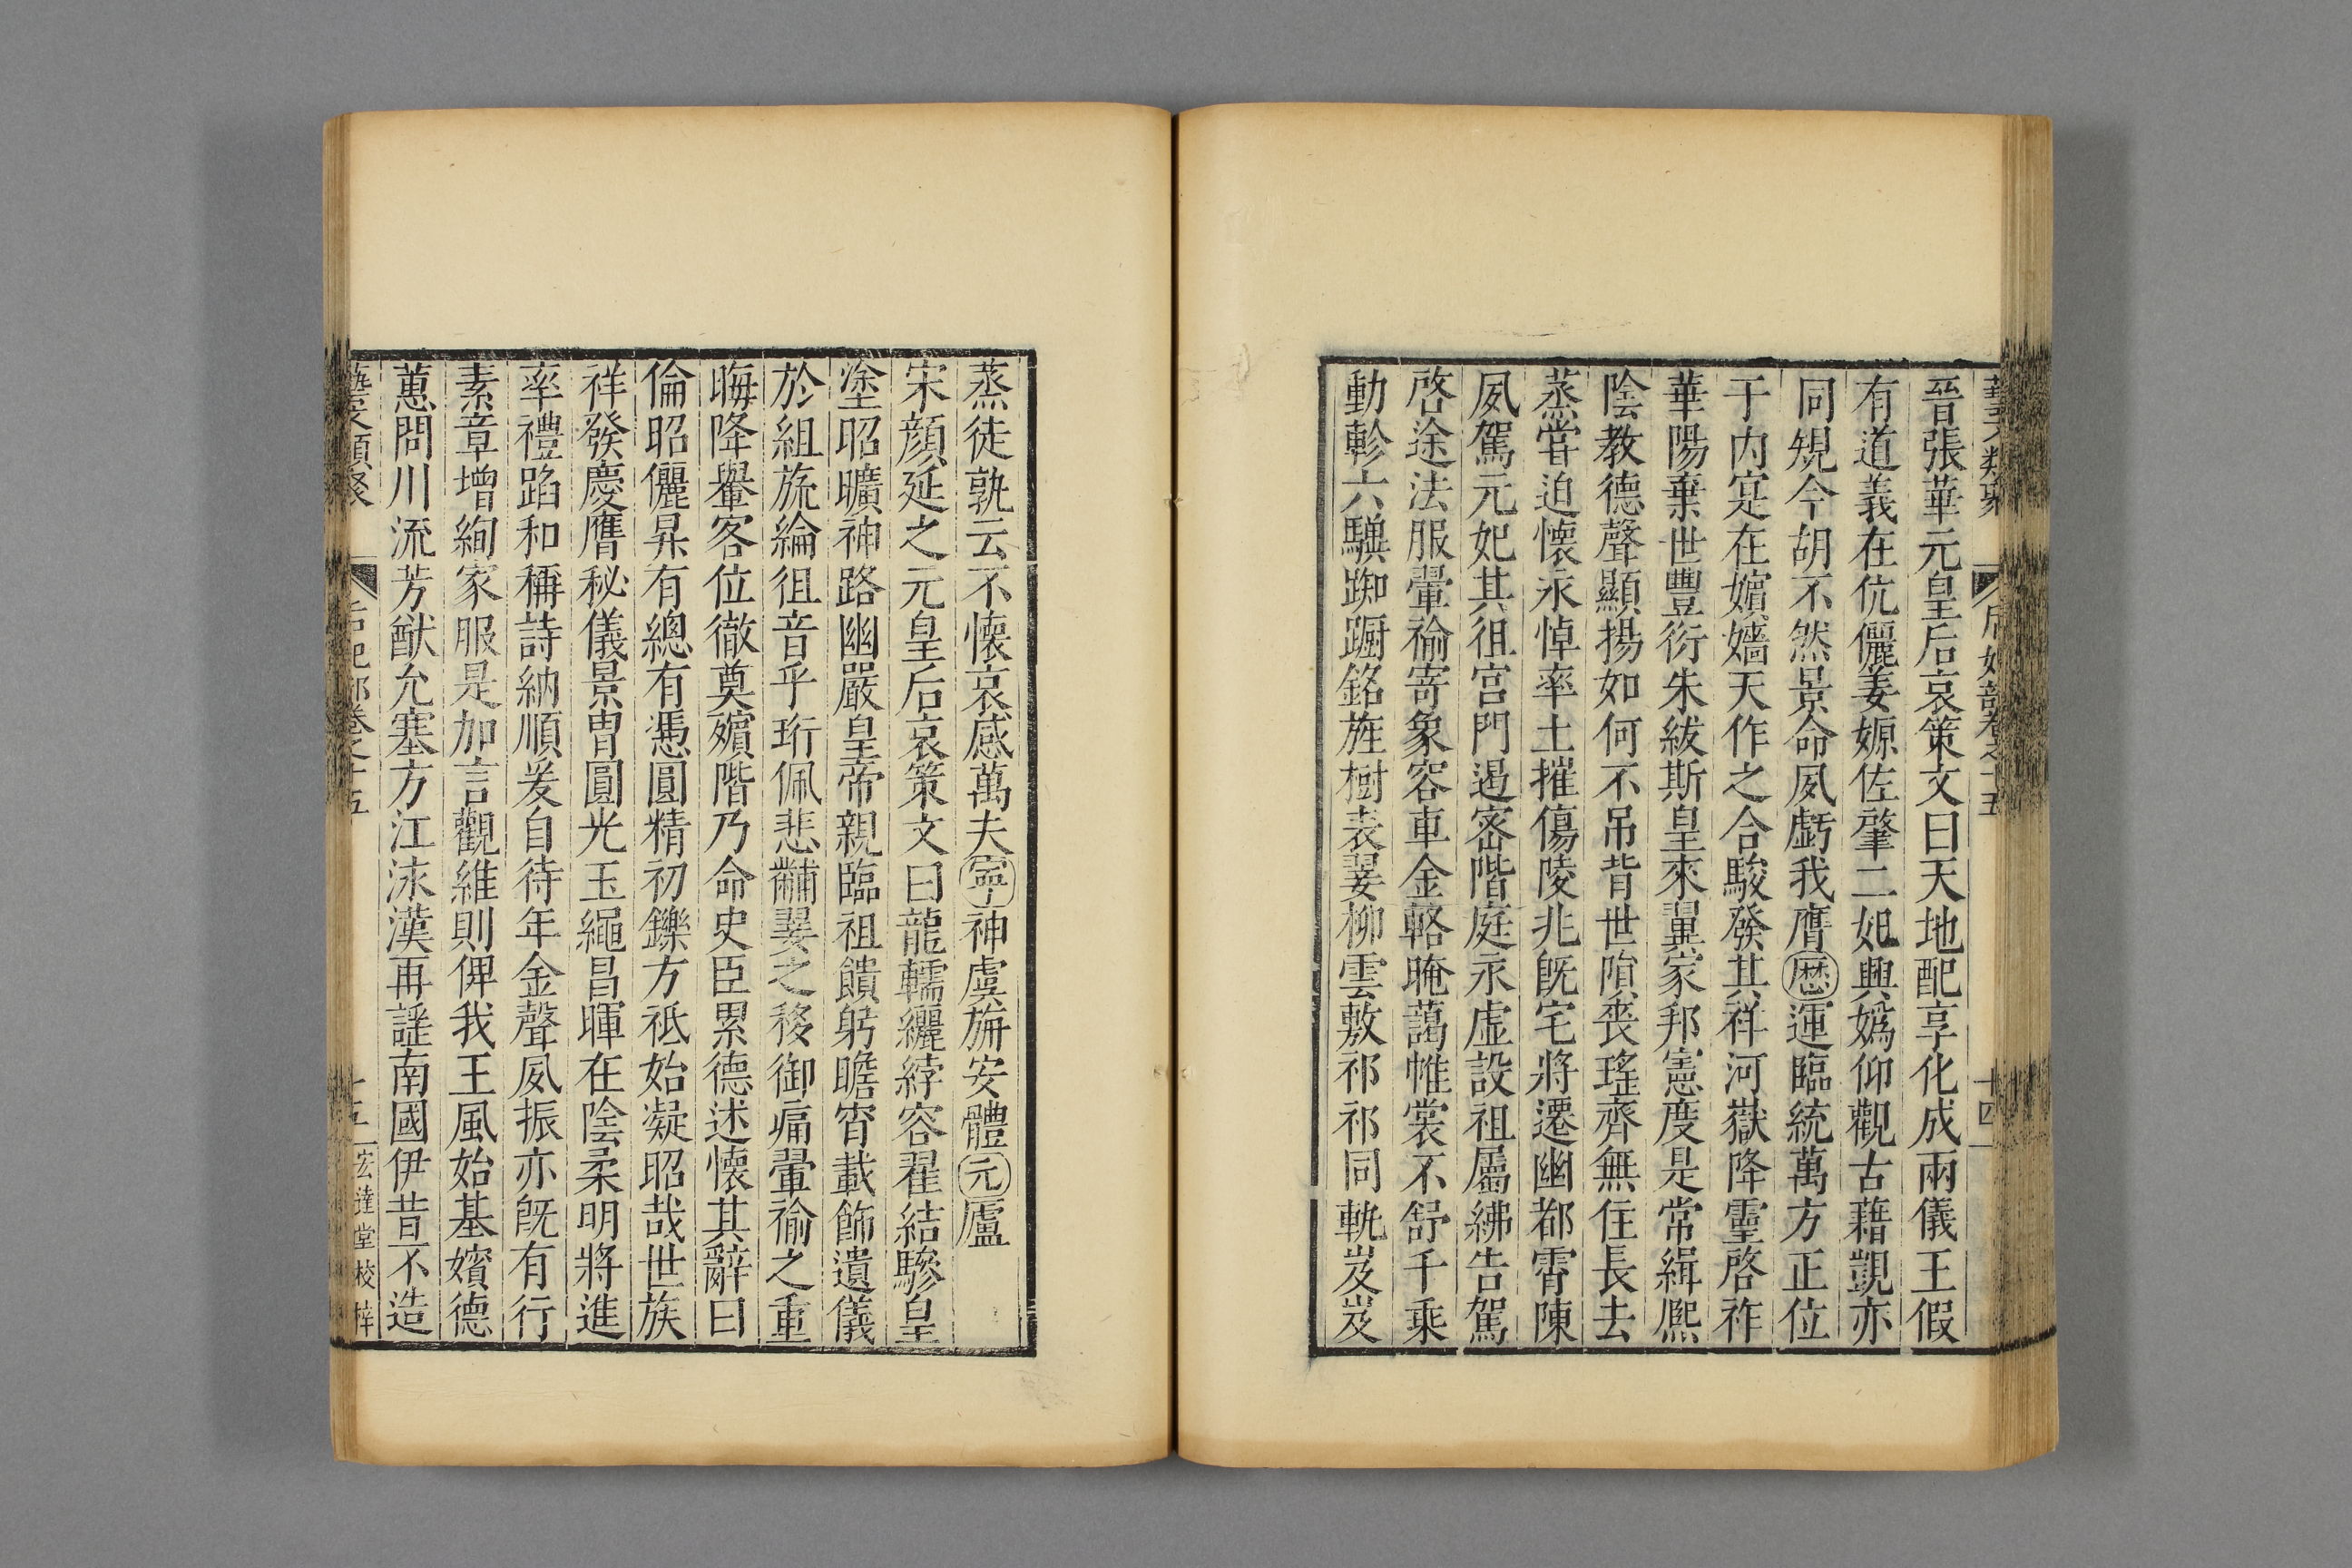 藝文類聚 后妃部卷之十五 十四
晉張華元皇后哀策文曰天地配享化成兩儀王假
有道義在伉儷姜嫄佐肇二妃興嬀仰觀古藉覬亦
同規今胡不然景命夙虧我膺厯運臨統萬方正位
于内寔在嬪嬙天作之合駿發其祥河嶽降靈啓祚
華陽棄世豐衍朱紱斯皇來翼家邦憲度是常緝熈
陰教德聲顯揚如何不吊背世隕喪瑤齊無住長去
蒸甞迫懷永悼率土摧傷陵兆旣宅將遷幽都霄陳
夙駕元妃其徂宮門遏宻階庭永虛設祖屬紼告駕
啓途法服翬褕寄象容車金輅晻藹帷裳不舒千乘
動軫六驥踟蹰銘旌樹表翣柳雲敷祁祁同軌岌岌
蒸徒孰云不懷哀感萬夫寧神虞旃安體元廬
宋顔延之元皇后哀策文曰龍轜纚綍容翟結驂皇
塗昭曠神路幽嚴皇帝親臨祖饋躬瞻宵載飾遺儀
於組旒綸徂音乎珩佩悲黼翣之移御痛翬褕之重
晦降轝客位徹奠殯階乃命史臣累德述懷其辭曰
倫昭儷昇有總有憑圓精初鑠方祗始凝昭哉世族
祥發慶膺秘儀景胄圓光玉繩昌暉在陰柔明將進
率禮蹈和稱詩納順爰自待年金聲夙振亦旣有行
素章增絢家服是加言觀維則俾我王風始基嬪德
蕙問川流芳猷允塞方江泳漢再謡南國伊昔不造
藝文類聚 后妃部卷之十五 十五 宏達堂校梓